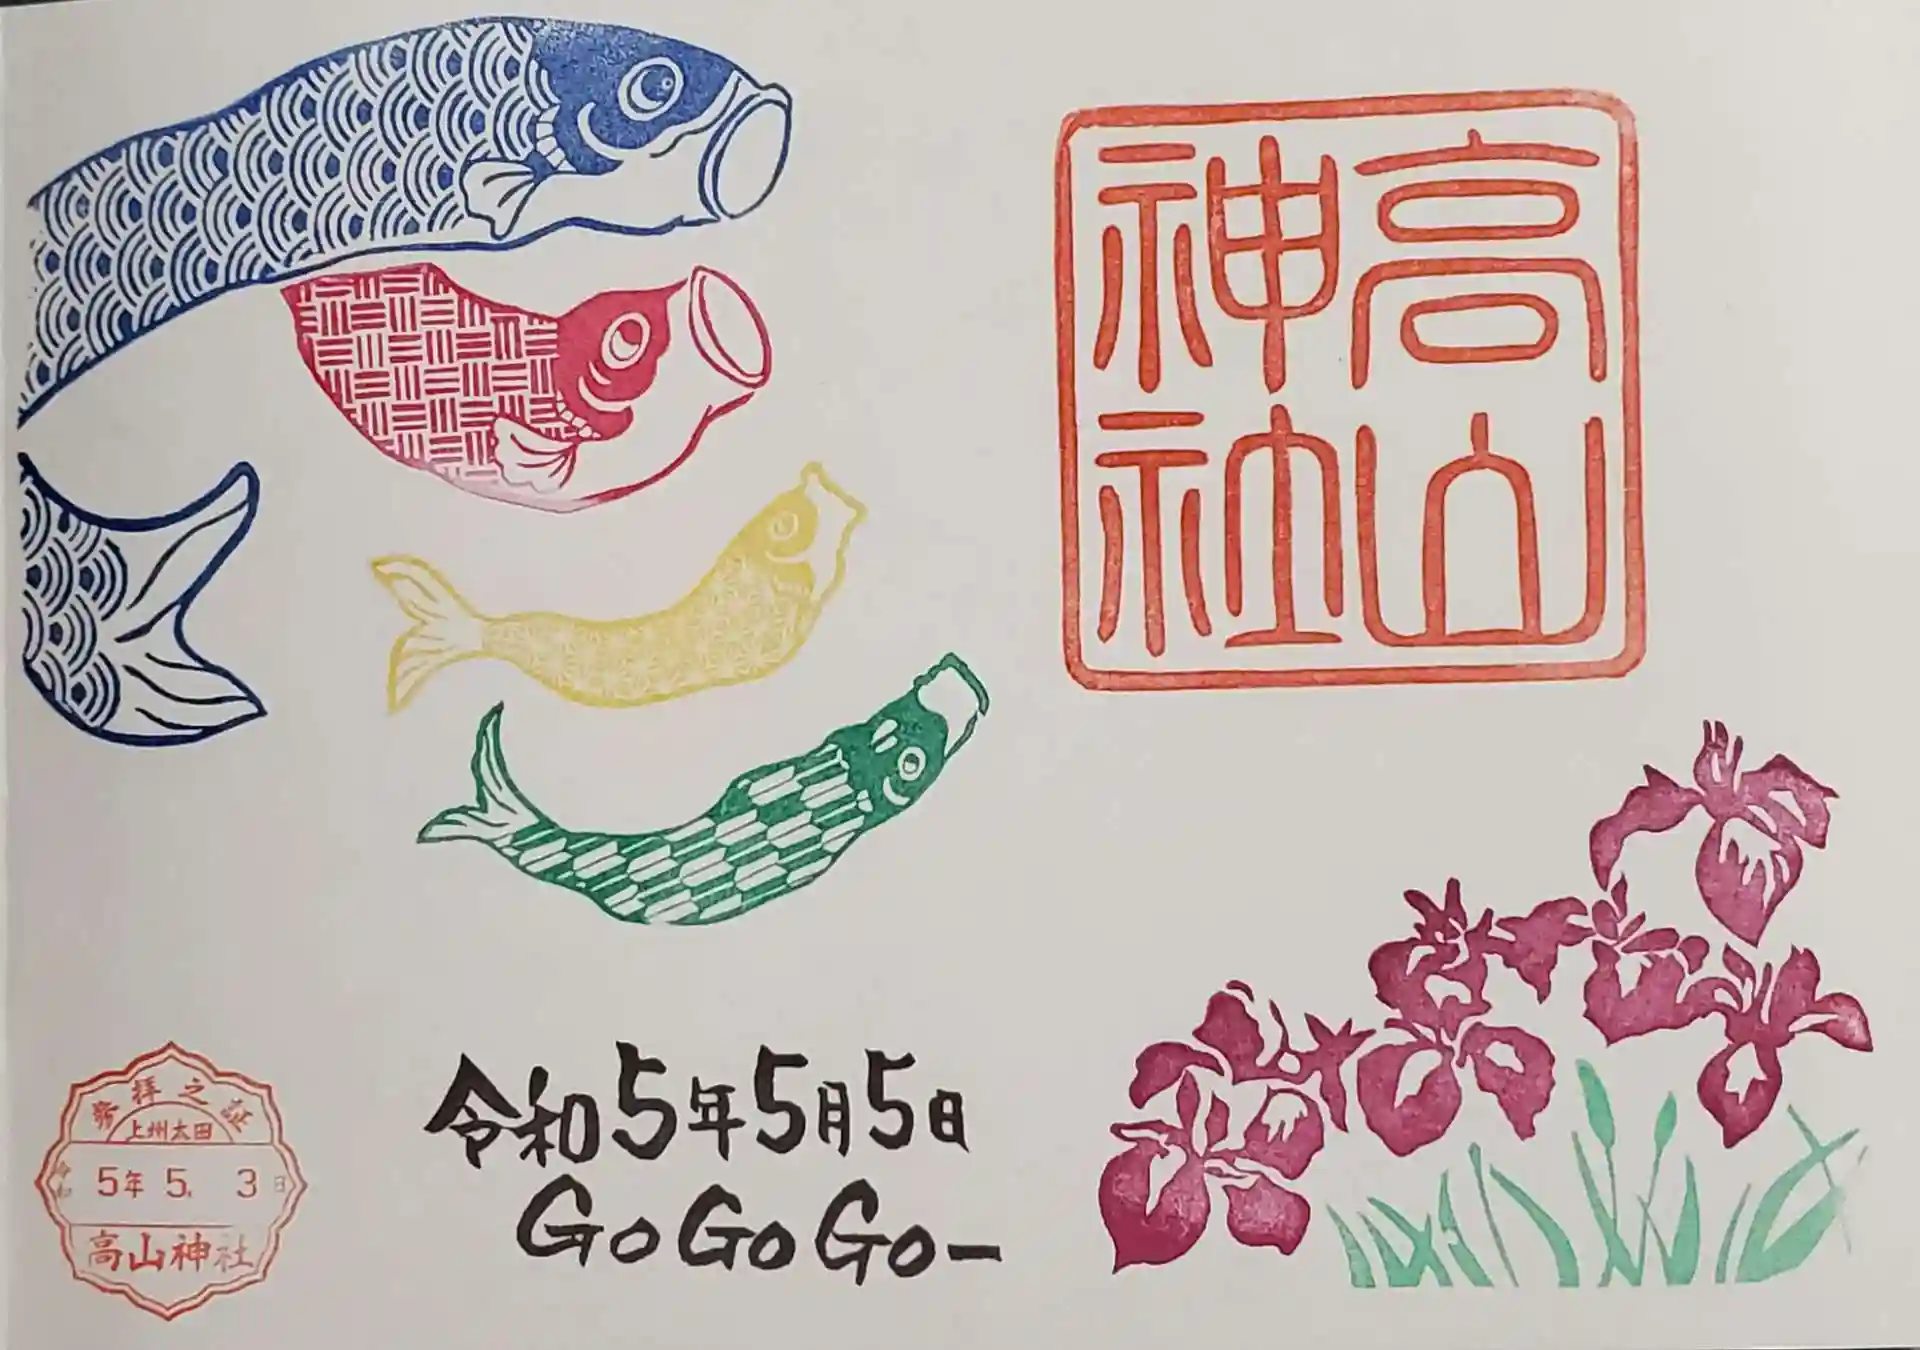 高山
神社
令和5年5月5日
GoGoGo-
参拝之証
上州太田
令和 5年 5. 3日
高山神社